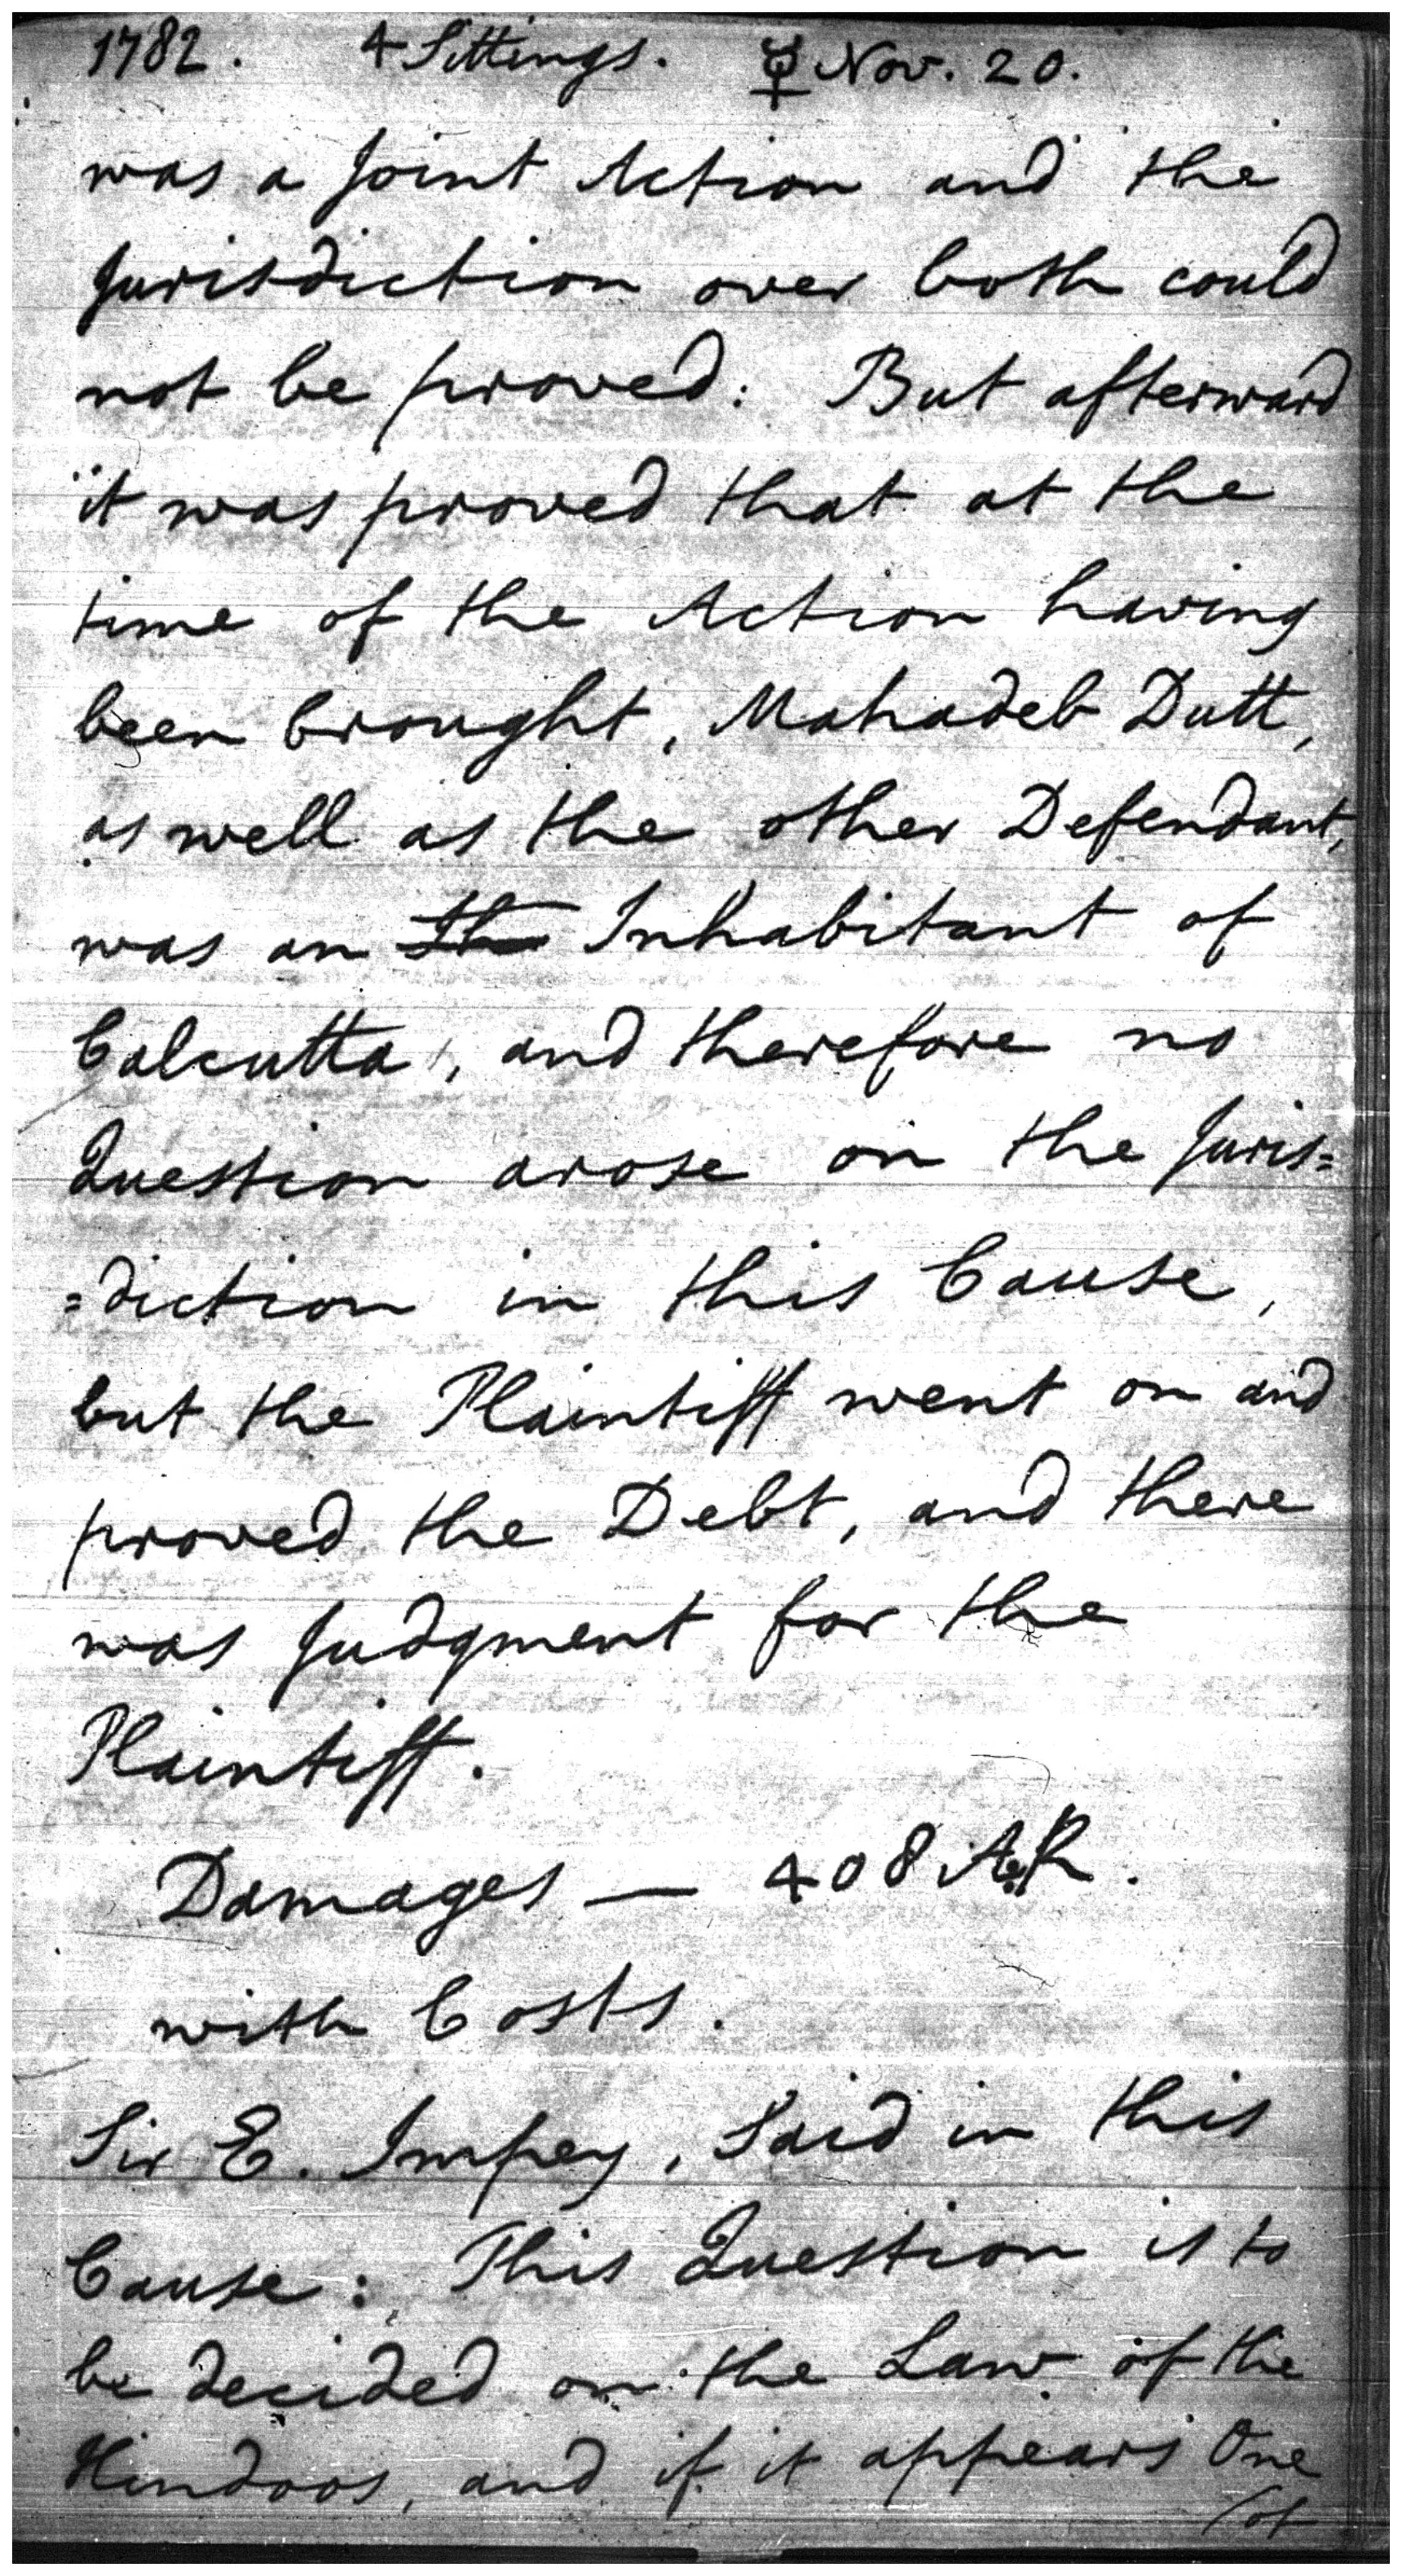 1782. 4 Sittings. ☿ Nov. 20.
was a Joint Action and the
Jurisdiction over both could
not be proved: But afterward
it was proved that at the
time of the Action having
been brought, Mahadeb Dutt,
as well as the other Defendant,
was an ~~Ih~~ Inhabitant of
Calcutta, and therefore no
Question arose on the Juris=
=diction in this Cause,
but the Plaintiff went on and
proved the Debt, and there
was Judgment for the
Plaintiff.
Damages — 408 A.R.
with Costs.
Sir E. Impey, Said in this
Cause: This Question is to
be decided on the Law of the
Hindoos, and if it appears One
(of